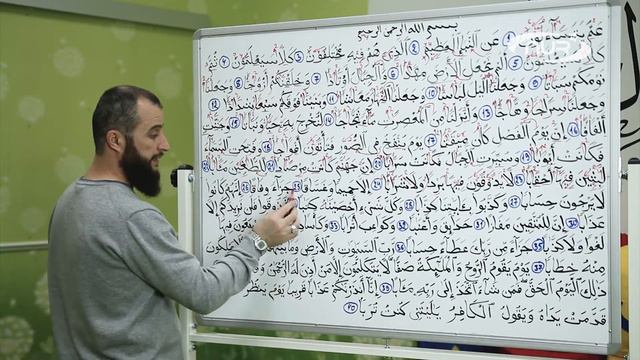 بسم الله الرحمن الرحيم
عَمَّ يَتَسَاءَلُونَ ١ عَنِ النَّبَإِ الْعَظِيمِ ٢ الَّذِي هُمْ فِيهِ مُخْتَلِفُونَ ٣ كَلَّا سَيَعْلَمُونَ ٤ ثُمَّ
كَلَّا سَيَعْلَمُونَ ٥ أَلَمْ نَجْعَلِ الْأَرْضَ مِهَادًا ٦ وَالْجِبَالَ أَوْتَادًا ٧ وَخَلَقْنَاكُمْ أَزْوَاجًا ٨ وَجَعَلْنَا
نَوْمَكُمْ سُبَاتًا ٩ وَجَعَلْنَا اللَّيْلَ لِبَاسًا ١٠ وَجَعَلْنَا النَّهَارَ مَعَاشًا ١١ وَبَنَيْنَا فَوْقَكُمْ سَبْعًا شِدَادًا ١٢
وَجَعَلْنَا سِرَاجًا وَهَّاجًا ١٣ وَأَنْزَلْنَا مِنَ الْمُعْصِرَاتِ مَاءً ثَجَّاجًا ١٤ لِنُخْرِجَ بِهِ حَبًّا وَنَبَاتًا ١٥ وَجَنَّاتٍ
أَلْفَافًا ١٦ إِنَّ يَوْمَ الْفَصْلِ كَانَ مِيقَاتًا ١٧ يَوْمَ يُنْفَخُ فِي الصُّورِ فَتَأْتُونَ أَفْوَاجًا ١٨ وَفُتِحَتِ السَّمَاءُ
فَكَانَتْ أَبْوَابًا ١٩ وَسُيِّرَتِ الْجِبَالُ فَكَانَتْ سَرَابًا ٢٠ إِنَّ جَهَنَّمَ كَانَتْ مِرْصَادًا ٢١ لِلطَّاغِينَ مَآبًا ٢٢
لَابِثِينَ فِيهَا أَحْقَابًا ٢٣ لَا يَذُوقُونَ فِيهَا بَرْدًا وَلَا شَرَابًا ٢٤ إِلَّا حَمِيمًا وَغَسَّاقًا ٢٥ جَزَاءً وِفَاقًا ٢٦ إِنَّهُمْ كَانُوا
لَا يَرْجُونَ حِسَابًا ٢٧ وَكَذَّبُوا بِآيَاتِنَا كِذَّابًا ٢٨ وَكُلَّ شَيْءٍ أَحْصَيْنَاهُ كِتَابًا فَذُوقُوا فَلَنْ نَزِيدَكُمْ إِلَّا
عَذَابًا ٣٠ إِنَّ لِلْمُتَّقِينَ مَفَازًا ٣١ حَدَائِقَ وَأَعْنَابًا ٣٢ وَكَوَاعِبَ أَتْرَابًا ٣٣ وَكَأْسًا يَسْمَعُونَ فِيهَا
لَغْوًا وَلَا كِذَّابًا ٣٥ جَزَاءً مِنْ رَبِّكَ عَطَاءً حِسَابًا ٣٦ رَبِّ السَّمَاوَاتِ وَالْأَرْضِ وَمَا بَيْنَهُمَا يَمْلِكُونَ
مِنْهُ خِطَابًا ٣٧ يَوْمَ يَقُومُ الرُّوحُ وَالْمَلَائِكَةُ صَفًّا لَا يَتَكَلَّمُونَ إِلَّا مَنْ أَذِنَ لَهُ الرَّحْمَنُ
ذَلِكَ الْيَوْمُ الْحَقُّ فَمَنْ شَاءَ اتَّخَذَ إِلَى رَبِّهِ مَآبًا ٣٩ إِنَّا أَنْذَرْنَاكُمْ عَذَابًا قَرِيبًا يَوْمَ يَنْظُرُ
قَدَّمَتْ يَدَاهُ وَيَقُولُ الْكَافِرُ يَالَيْتَنِي كُنْتُ تُرَابًا ٤٠